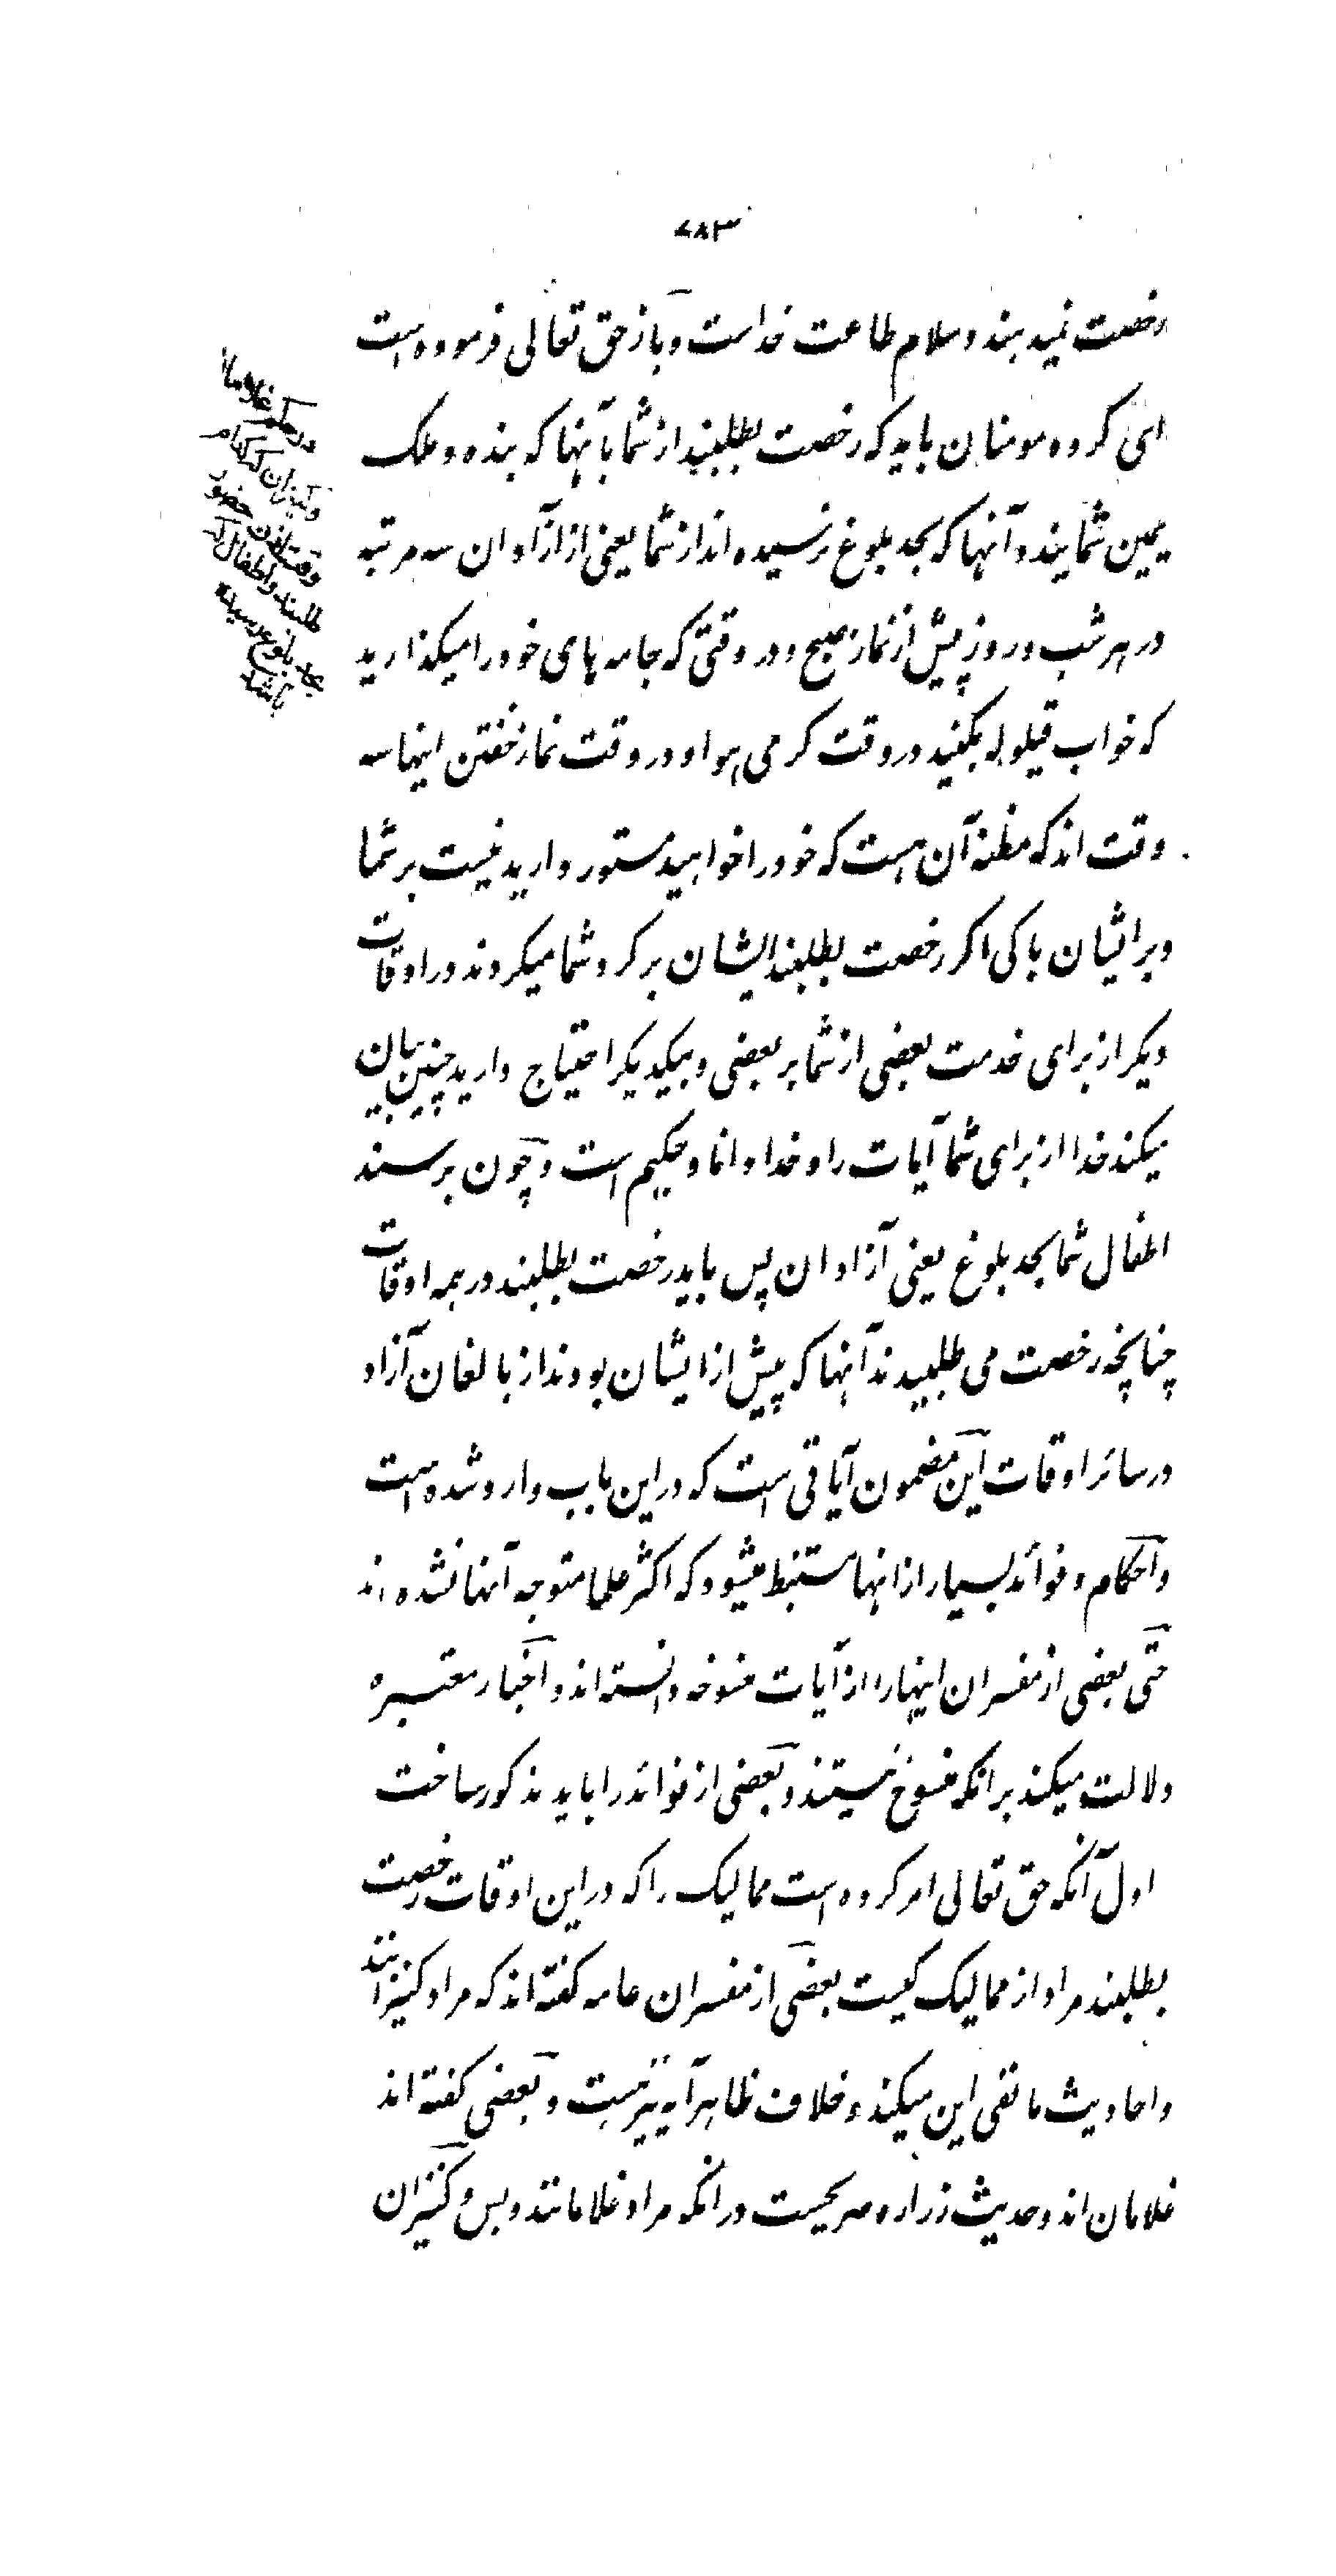 ۷۸۳
رخصت نمیدهند و سلام طاعت خداست و باز حق تعالی فرموده است
ای گروه مومنان باید که رخصت بطلبند از شما آنها که بنده و ملک
یمین شمایند و آنها که بحد بلوغ نرسیده اند از شما یعنی از آزادان سه مرتبه
در هر شب و روز پیش از نماز صبح و در وقتی که جامه های خود را میگذارید
که خواب قیلوله بکنید در وقت گرمی هوا و در وقت نماز خفتن اینها سه
وقت اند که مظنه آن هست که خود را خواهید مستور دارید نیست بر شما
و بر ایشان باکی اگر رخصت بطلبند ایشان بر گرد شما میگردند در اوقات
دیگر از برای خدمت بعضی از شما بر بعضی و بیکدیگر احتیاج دارید چنین بیان
میکند خدا از برای شما آیات را و خدا دانا و حکیم است و چون برسند
اطفال شما بحد بلوغ یعنی آزادان پس باید رخصت بطلبند در همه اوقات
چنانچه رخصت می طلبیدند آنها که پیش از ایشان بودند از بالغان آزاد
در سائر اوقات این مضمون آیاتی است که در این باب وارد شده است
و احکام و فوائد بسیار از انها مستنبط میشود که اکثر علما متوجه آنها نشده اند
حتی بعضی از مفسران اینها را از آیات منسوخه دانسته اند و اخبار معتبره
دلالت میکند بر انکه منسوخ نیستند و بعضی از فوائد را باید مذکور ساخت
اول آنکه حق تعالی امر کرده است ممالیک را که در این اوقات رخصت
بطلبند مراد از ممالیک کیست بعضی از مفسران عامه گفته اند که مراد کنیزانند
و احادیث ما نفی این میکند و خلاف ظاهر آیه نیز هست و بعضی گفته اند
غلامان اند و حدیث زراره صریحست در انکه مراد غلامانند و بس و کنیزان
در حکم غلامان
و کنیزان که کدام
وقت اذن حضور
طلبند و اطفال که
بحد بلوغ نرسیده
باشند